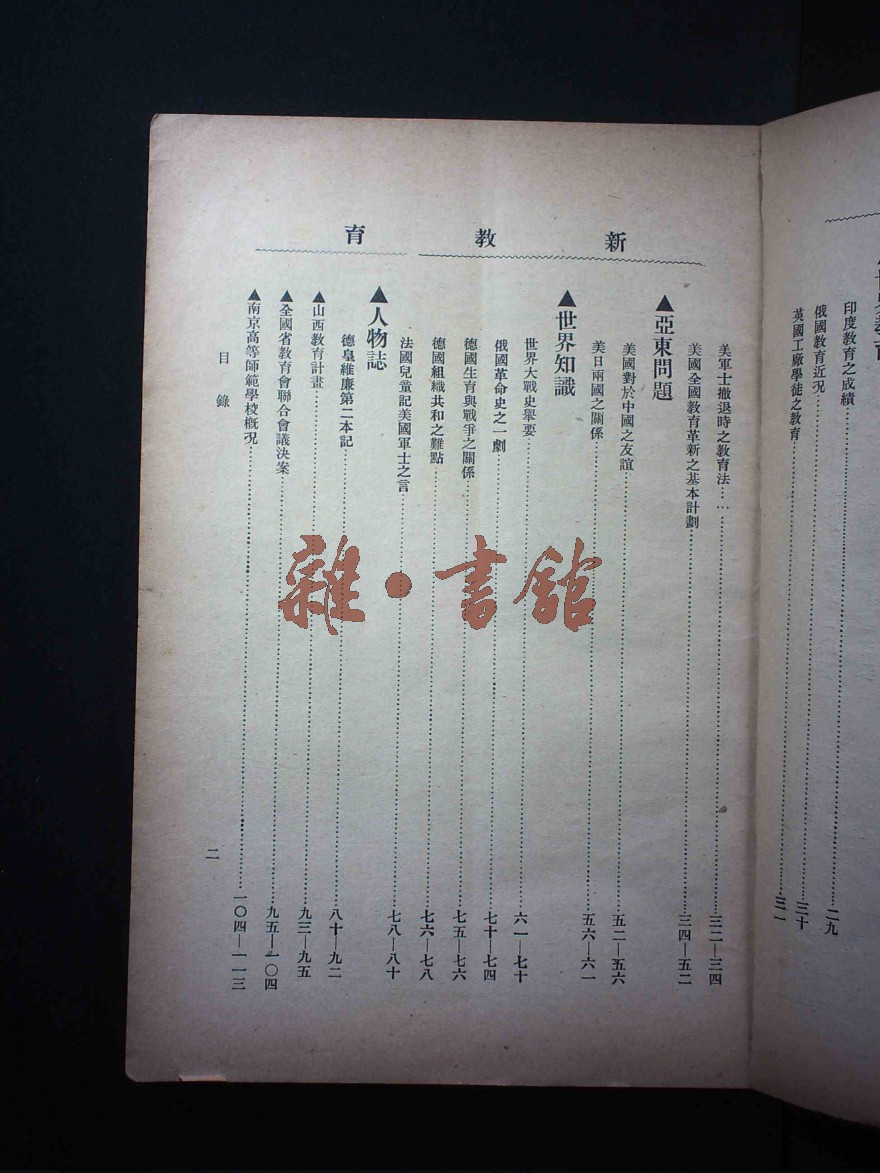 印度教育之成績……二九
俄國教育近况……三十
英國工廠學徒之教育……三一
新教育
美軍士撤退時之教育法……三二—三四
美國全國教育革新之基本計劃……三四—五二
▲亞東問題
美國對於中國之友誼……五二—五六
美日兩國之關係……五六—六一
▲世界知識
世界大戰史舉要……六一—七十
俄國革命史之一劇……七十—七四
德國生育與戰爭之關係……七五—七六
德國組織共和之難點……七六—七八
法國兒童記美國軍士之言……七八—八十
▲人物誌
德皇維廉第二本記……八十—九二
▲山西教育計畫……九三—九五
▲全國省教育會聯合會議決案……九五—一〇四
▲南京高等師範學校概况……一〇四—一一三
目錄
二
雜·書館